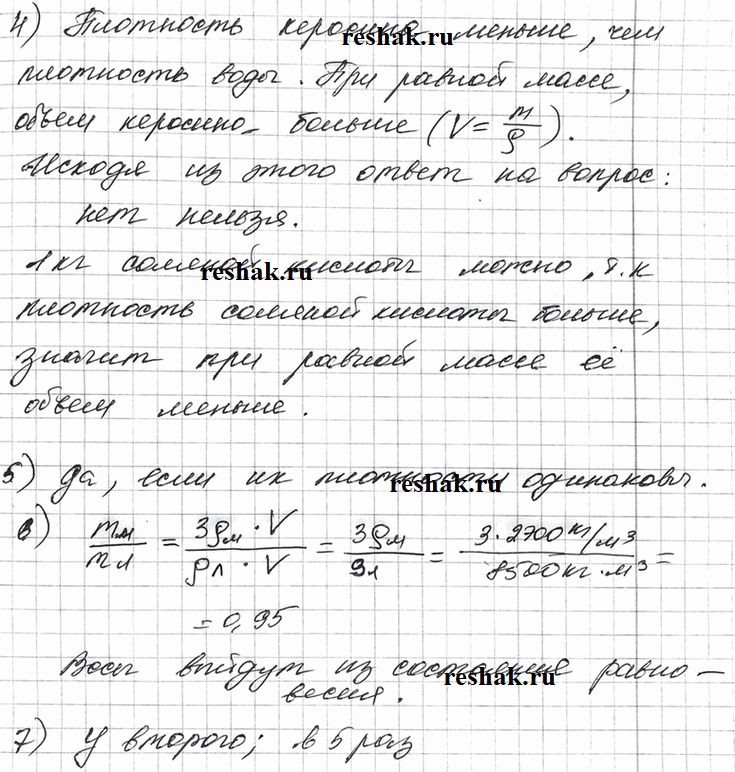 4) Плотность керосина меньше, чем
reshak.ru
плотность воды. При равной массе,
объем керосина больше (V = m/ρ).
Исходя из этого ответ на вопрос:
нет нельзя.
1 кг соляной кислоты можно, т.к
reshak.ru
плотность соляной кислоты больше,
значит при равной массе её
объем меньше.
5) Да, если их плотности одинаковы.
reshak.ru
6) mм/mл = 3ρм · V/ρл · V = 3ρм/ρл = 3·2700 кг/м³/8500 кг·м³ =
= 0,95
Весы выйдут из состояние равно-
reshak.ru
весия.
7) У второго; в 5 раз